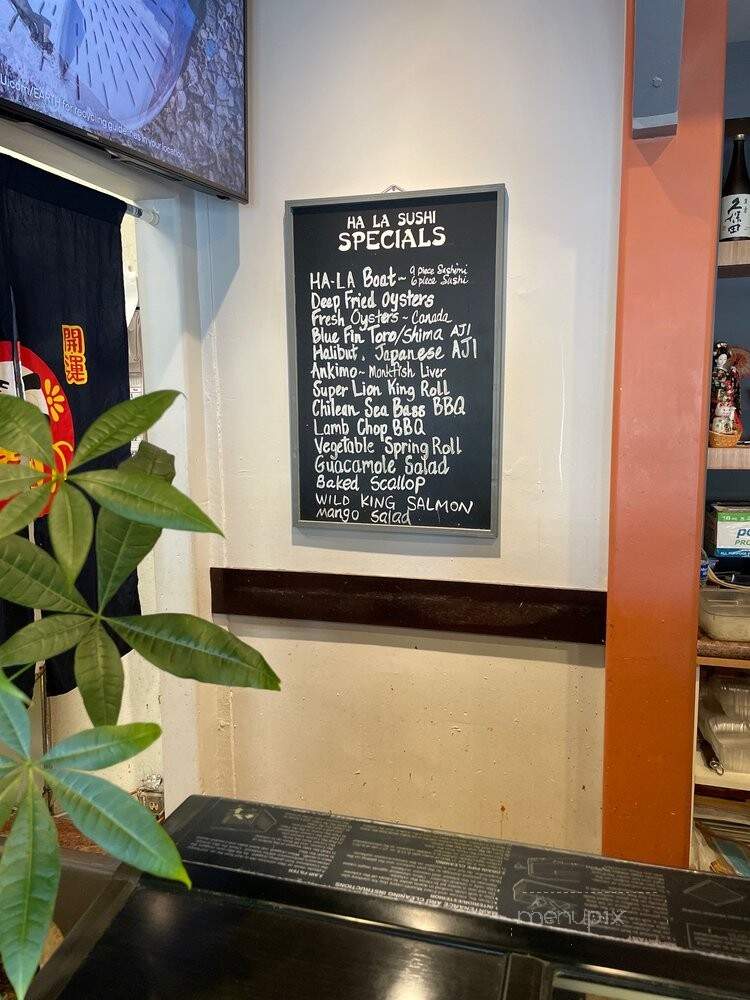 U.com/EARTH for recycling guidelines in your location.
HA LA SUSHI
SPECIALS
HA-LA Boat~ 9 piece Sashimi
6 piece Sushi
Deep Fried Oysters
Fresh Oysters ~ Canada
Blue Fin Toro/Shima AJI
Halibut, Japanese AJI
Ankimo~ Monkfish Liver
Super Lion King Roll
Chilean Sea Bass BBQ
Lamb Chop BBQ
Vegetable Spring Roll
Guacamole Salad
Baked Scallop
WILD KING SALMON
mango Salad
開運
久保田
menupix